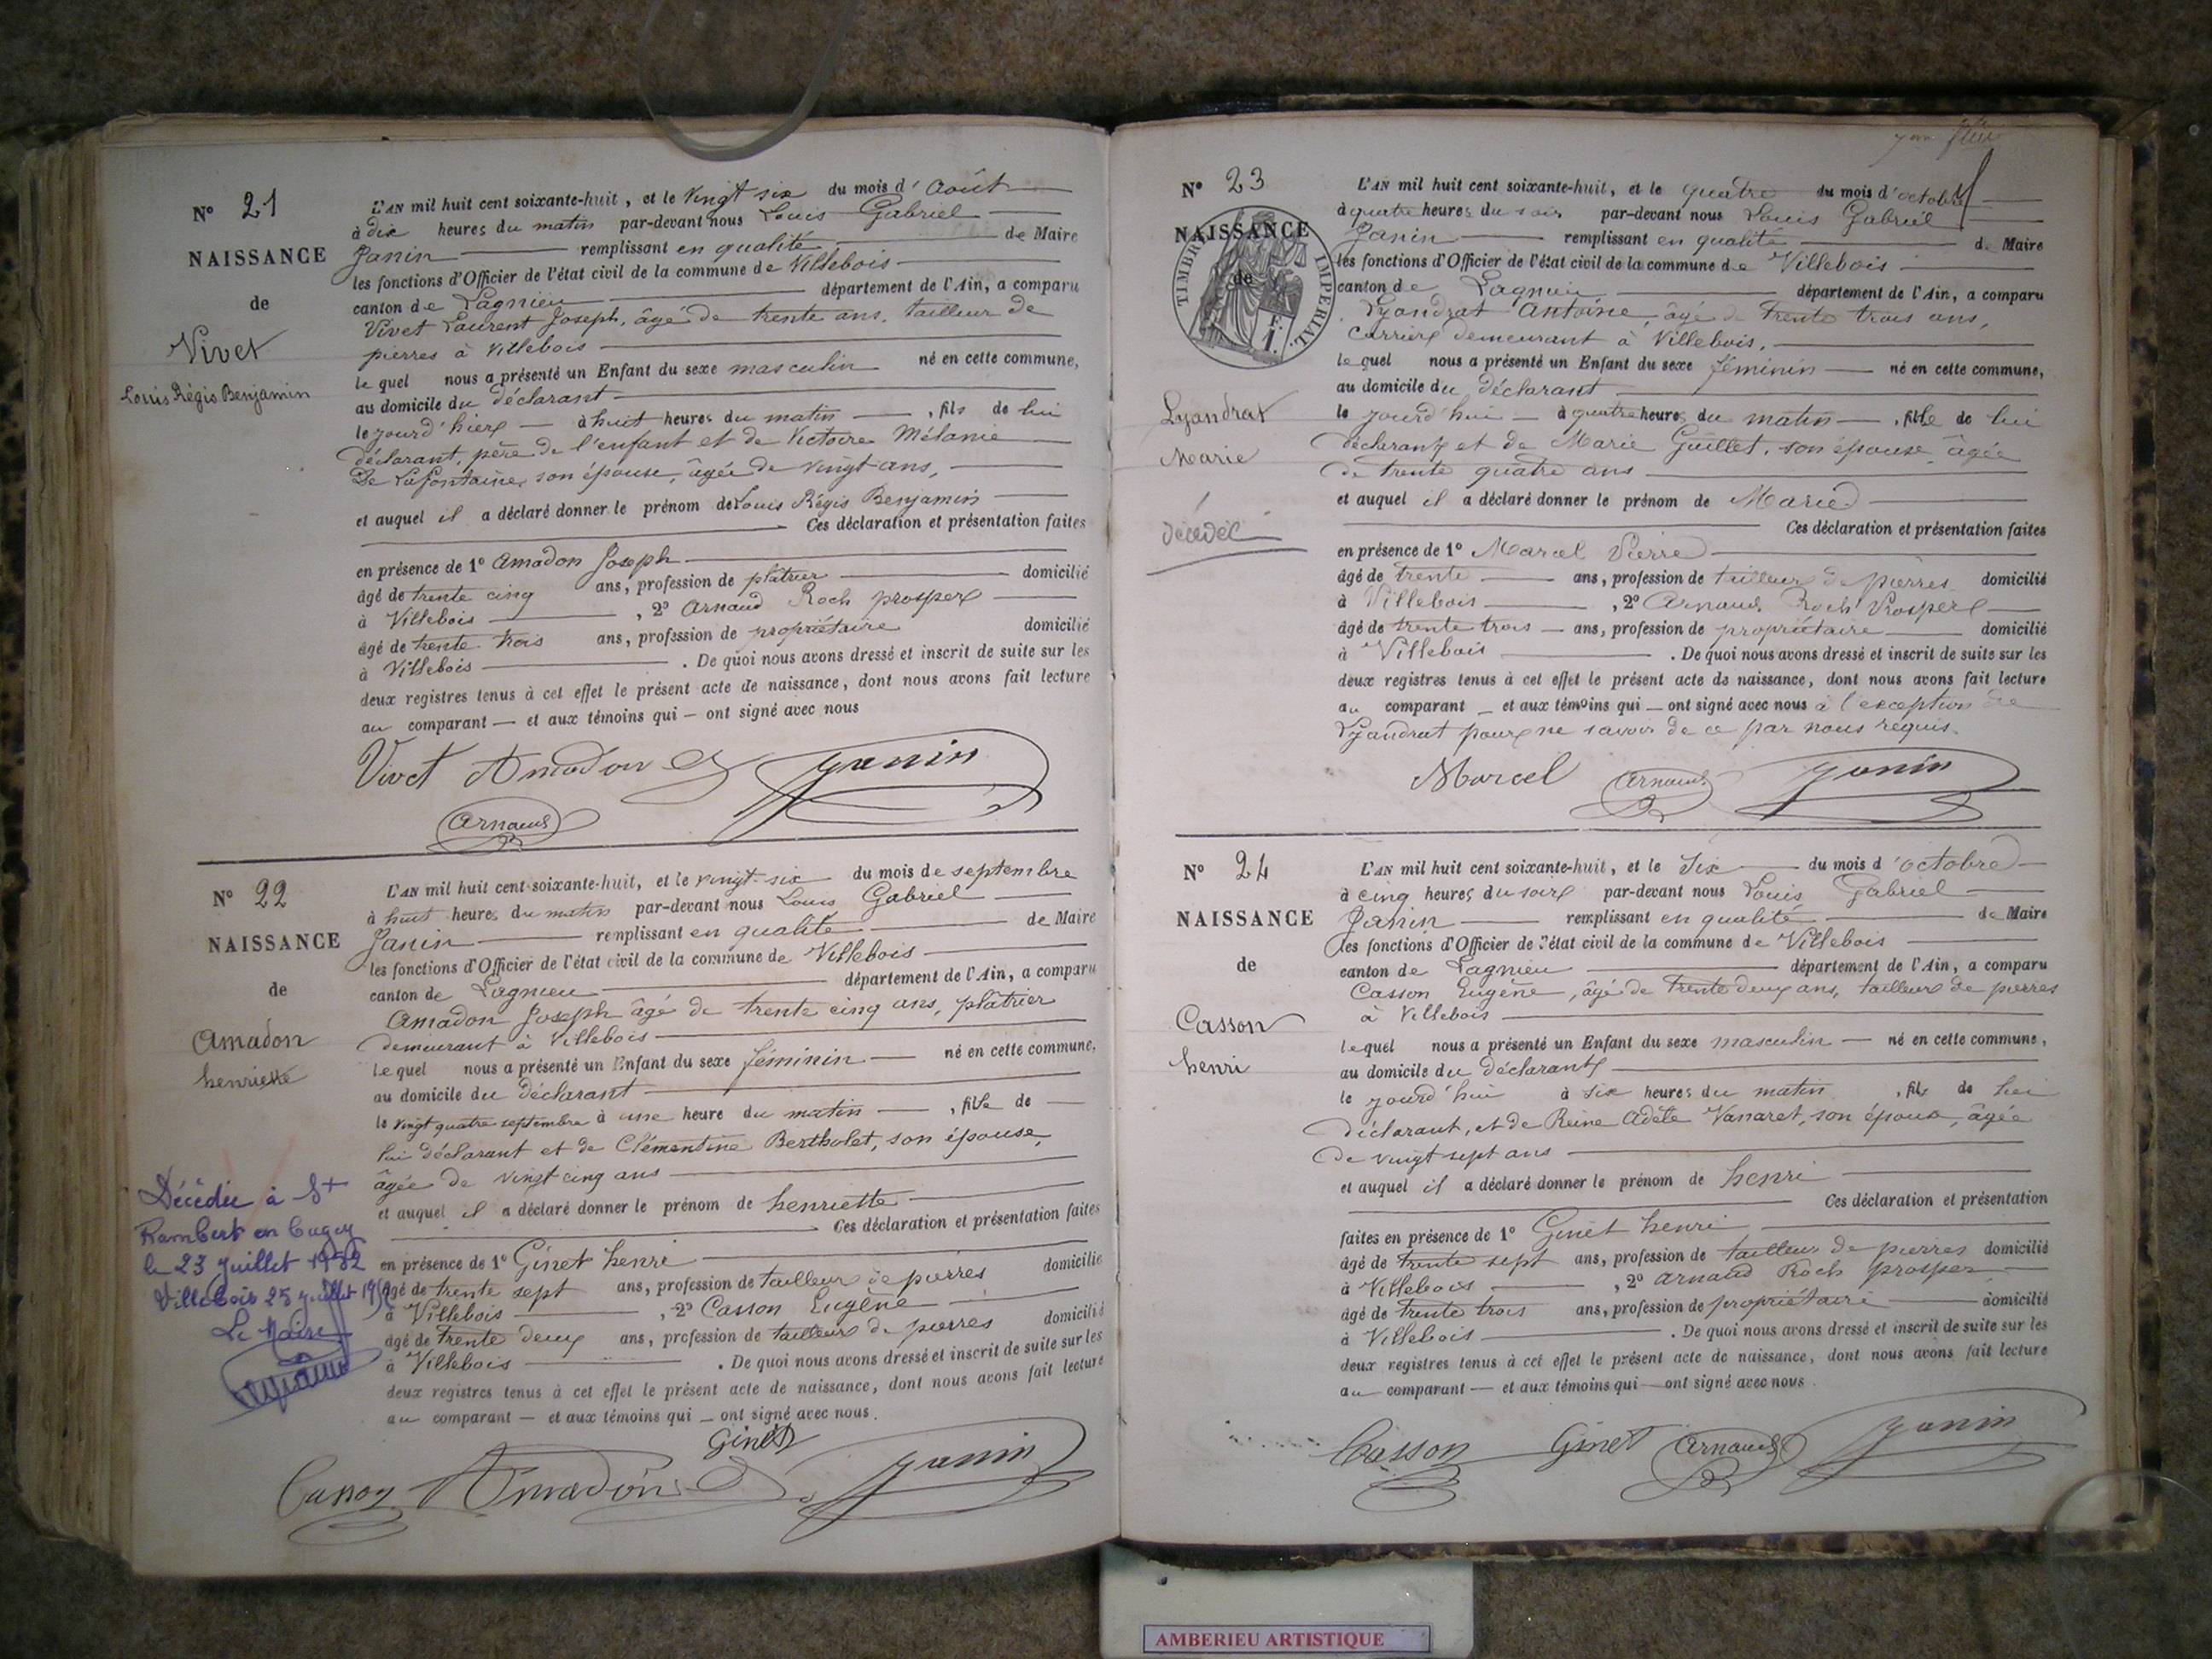 N° 21
NAISSANCE
de
Vivet
Louis Régis Benjamin
L'AN mil huit cent soixante-huit, et le vingt six du mois d'Août
à dix heures du matin par-devant nous Louis Gabriel
Janin remplissant en qualité de Maire
les fonctions d'Officier de l'état civil de la commune de Villebois
canton de Lagnieu département de l'Ain, a comparu
Vivet Laurent Joseph, âgé de trente ans, tailleur de
pierres à Villebois
lequel nous a présenté un Enfant du sexe masculin né en cette commune,
au domicile du déclarant
le jourd'hier à huit heures du matin, fils de lui
déclarant, père de l'enfant et de Victoire Mélanie
De Lafontaine, son épouse, âgée de vingt ans,
et auquel il a déclaré donner le prénom de Louis Régis Benjamin
Ces déclaration et présentation faites
en présence de 1° Amadon Joseph
âgé de trente cinq ans, profession de plâtrier domicilié
à Villebois, 2° Arnaud Roch prosper
âgé de trente trois ans, profession de propriétaire domicilié
à Villebois. De quoi nous avons dressé et inscrit de suite sur les
deux registres tenus à cet effet le présent acte de naissance, dont nous avons fait lecture
au comparant — et aux témoins qui — ont signé avec nous
Vivet Amadon Janin
Arnaud
N° 22
NAISSANCE
de
Amadon
henriette
Décédée à St
Rambert en Bugey
le 23 juillet 1932
Villebois 25 juillet 19
Le Maire
L'AN mil huit cent soixante-huit, et le vingt-six du mois de septembre
à huit heures du matin par-devant nous Louis Gabriel
Janin remplissant en qualité de Maire
les fonctions d'Officier de l'état civil de la commune de Villebois
canton de Lagnieu département de l'Ain, a comparu
Amadon Joseph âgé de trente cinq ans, plâtrier
demeurant à Villebois
lequel nous a présenté un Enfant du sexe féminin — né en cette commune,
au domicile du déclarant
le vingt quatre septembre à une heure du matin —, fille de —
lui déclarant et de Clémentine Bertholet, son épouse,
âgée de vingt cinq ans
et auquel il a déclaré donner le prénom de henriette
Ces déclaration et présentation faites
en présence de 1° Ginet henri
âgé de trente sept ans, profession de tailleur de pierres domicilié
à Villebois, 2° Casson Eugène
âgé de trente deux ans, profession de tailleur de pierres domicilié
à Villebois. De quoi nous avons dressé et inscrit de suite sur les
deux registres tenus à cet effet le présent acte de naissance, dont nous avons fait lecture
au comparant — et aux témoins qui — ont signé avec nous.
Ginet
Casson Amadon Janin
N° 23
NAISSANCE
de
TIMBRE IMPERIAL
1 F.
Lyandrat
Marie
décédée
L'AN mil huit cent soixante-huit, et le quatre du mois d'octobre
à quatre heures du soir par-devant nous Louis Gabriel
Janin remplissant en qualité de Maire
les fonctions d'Officier de l'état civil de la commune de Villebois
canton de Lagnieu département de l'Ain, a comparu
Lyandrat Antoine, âgé de trente trois ans,
carrier demeurant à Villebois,
lequel nous a présenté un Enfant du sexe féminin — né en cette commune,
au domicile du déclarant
le jourd'hui — à quatre heures du matin —, fille de lui
déclarant et de Marie Guillet, son épouse âgée
de trente quatre ans
et auquel il a déclaré donner le prénom de Marie
Ces déclaration et présentation faites
en présence de 1° Marcel Pierre
âgé de trente — ans, profession de tailleur de pierres domicilié
à Villebois, 2° Arnaud Roch Prosper
âgé de trente trois — ans, profession de propriétaire domicilié
à Villebois. De quoi nous avons dressé et inscrit de suite sur les
deux registres tenus à cet effet le présent acte de naissance, dont nous avons fait lecture
au comparant — et aux témoins qui — ont signé avec nous à l'exception de
Lyandrat pour ne savoir de ce par nous requis.
Marcel Arnaud Janin
N° 24
NAISSANCE
de
Casson
henri
L'AN mil huit cent soixante-huit, et le Six du mois d'octobre
à cinq heures du soir par-devant nous Louis Gabriel
Janin remplissant en qualité de Maire
les fonctions d'Officier de l'état civil de la commune de Villebois
canton de Lagnieu département de l'Ain, a comparu
Casson Eugène, âgé de trente deux ans, tailleur de pierres
à Villebois
lequel nous a présenté un Enfant du sexe masculin — né en cette commune,
au domicile du déclarant
le jourd'hui à six heures du matin, fils de lui
déclarant, et de Reine Adèle Vanaret, son épouse, âgée
de vingt sept ans
et auquel il a déclaré donner le prénom de henri
Ces déclaration et présentation
faites en présence de 1° Ginet henri
âgé de trente sept ans, profession de tailleur de pierres domicilié
à Villebois, 2° Arnaud Roch prosper
âgé de trente trois ans, profession de propriétaire domicilié
à Villebois. De quoi nous avons dressé et inscrit de suite sur les
deux registres tenus à cet effet le présent acte de naissance, dont nous avons fait lecture
au comparant — et aux témoins qui — ont signé avec nous.
Casson Ginet Arnaud Janin
AMBERIEU ARTISTIQUE